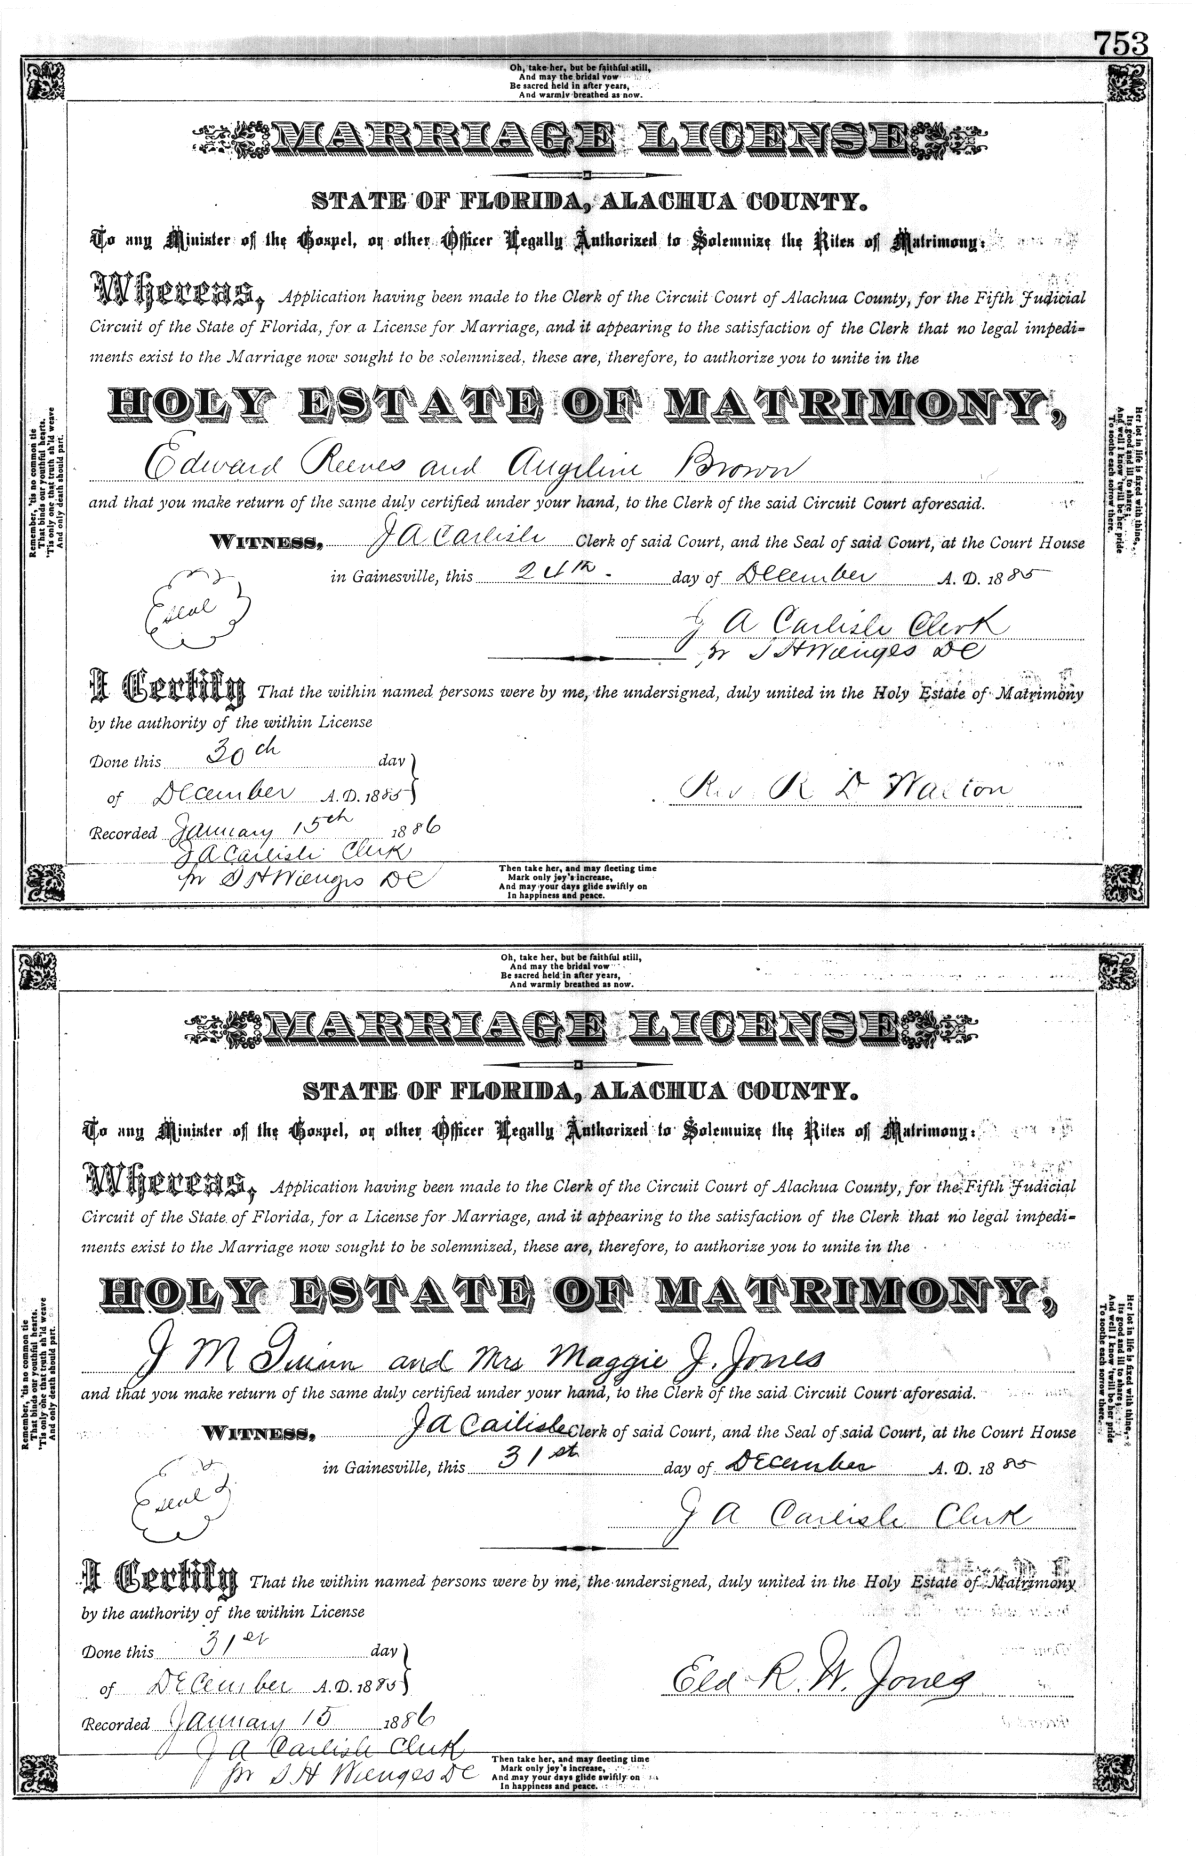 753
Oh, take her, but be faithful still,
And may the bridal vow
Be sacred held in after years,
And warmly breathed as now.
MARRIAGE LICENSE
STATE OF FLORIDA, ALACHUA COUNTY.
To any Minister of the Gospel, or other Officer Legally Authorized to Solemnize the Rites of Matrimony:
Whereas, Application having been made to the Clerk of the Circuit Court of Alachua County, for the Fifth Judicial
Circuit of the State of Florida, for a License for Marriage, and it appearing to the satisfaction of the Clerk that no legal impedi-
ments exist to the Marriage now sought to be solemnized, these are, therefore, to authorize you to unite in the
HOLY ESTATE OF MATRIMONY,
Edward Reeves and Angeline Brown
and that you make return of the same duly certified under your hand, to the Clerk of the said Circuit Court aforesaid.
WITNESS, J A Carlisle Clerk of said Court, and the Seal of said Court, at the Court House
in Gainesville, this 24th. day of December A. D. 1885
Seal
J A Carlisle Clerk
pr S H Wienges DC
I Certify That the within named persons were by me, the undersigned, duly united in the Holy Estate of Matrimony
by the authority of the within License
Done this 30th day
of December A.D. 1885
Rev. R D Walton
Recorded January 15th 1886
J A Carlisle Clerk
pr S H Wienges DC
Remember, 'tis no common tie
That binds our youthful hearts,
'Tis only one that truth sh'ld weave
And only death should part.
Her lot in life is fixed with thine,
Its good and ill to share;
And well I know 'twill be her pride
To soothe each sorrow there.
Then take her, and may fleeting time
Mark only joy's increase,
And may your days glide swiftly on
In happiness and peace.
Oh, take her, but be faithful still,
And may the bridal vow
Be sacred held in after years,
And warmly breathed as now.
MARRIAGE LICENSE
STATE OF FLORIDA, ALACHUA COUNTY.
To any Minister of the Gospel, or other Officer Legally Authorized to Solemnize the Rites of Matrimony:
Whereas, Application having been made to the Clerk of the Circuit Court of Alachua County, for the Fifth Judicial
Circuit of the State of Florida, for a License for Marriage, and it appearing to the satisfaction of the Clerk that no legal impedi-
ments exist to the Marriage now sought to be solemnized, these are, therefore, to authorize you to unite in the
HOLY ESTATE OF MATRIMONY,
J M Guinn and Mrs Maggie J. Jones
and that you make return of the same duly certified under your hand, to the Clerk of the said Circuit Court aforesaid.
WITNESS, J A Carlisle Clerk of said Court, and the Seal of said Court, at the Court House
in Gainesville, this 31st day of December A. D. 1885
Seal
J A Carlisle Clerk
I Certify That the within named persons were by me, the undersigned, duly united in the Holy Estate of Matrimony
by the authority of the within License
Done this 31st day
of December A.D. 1885
Eld R. W. Jones
Recorded January 15 1886
J A Carlisle Clerk
pr S H Wienges DC
Remember, 'tis no common tie
That binds our youthful hearts,
'Tis only one that truth sh'ld weave
And only death should part.
Her lot in life is fixed with thine,
Its good and ill to share;
And well I know 'twill be her pride
To soothe each sorrow there.
Then take her, and may fleeting time
Mark only joy's increase,
And may your days glide swiftly on
In happiness and peace.